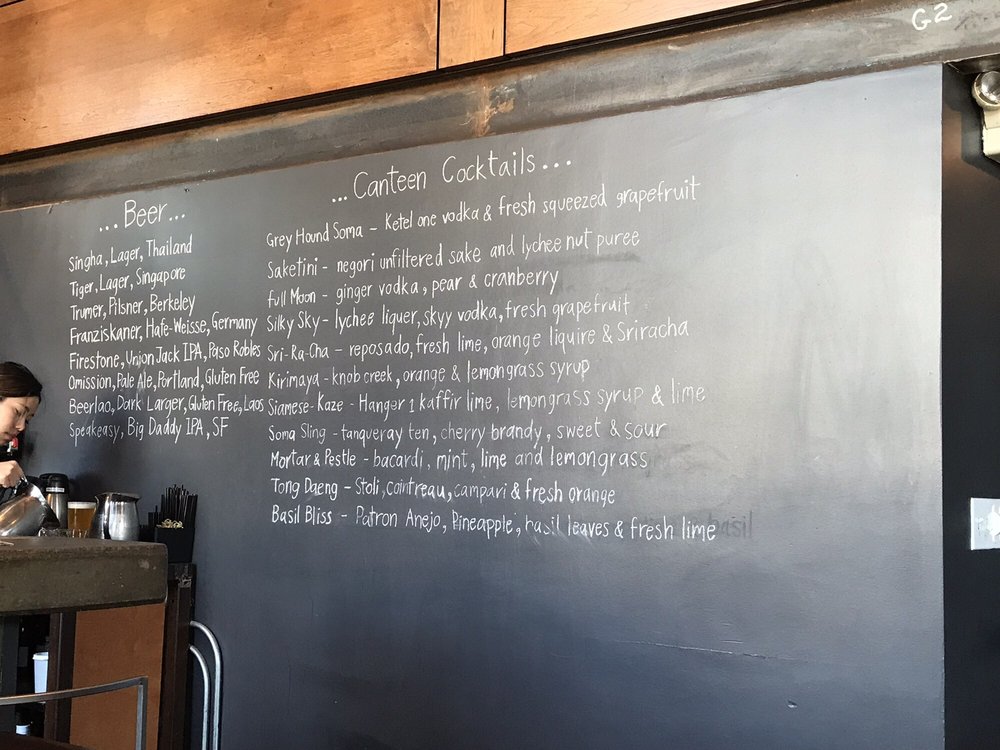 G2
...Beer...
Singha, Lager, Thailand
Tiger, Lager, Singapore
Trumer, Pilsner, Berkeley
Franziskaner, Hafe-Weisse, Germany
Firestone, Union Jack IPA, Paso Robles
Omission, Pale Ale, Portland, Gluten Free
Beerlao, Dark Larger, Gluten Free, Laos
Speakeasy, Big Daddy IPA, SF
...Canteen Cocktails...
Grey Hound Soma - Ketel one vodka & fresh squeezed grapefruit
Saketini - negori unfiltered sake and lychee nut puree
Full Moon - ginger vodka, pear & cranberry
Silky Sky - lychee liquer, skyy vodka, fresh grapefruit
Sri-Ra-Cha - reposado, fresh lime, orange liquire & Sriracha
Kirimaya - knob creek, orange & lemongrass syrup
Siamese-Kaze - Hanger 1 kaffir lime, lemongrass syrup & lime
Soma Sling - tanqueray ten, cherry brandy, sweet & sour
Mortar & Pestle - bacardi, mint, lime and lemongrass
Tong Daeng - Stoli, cointreau, campari & fresh orange
Basil Bliss - Patron Anejo, Pineapple, basil leaves & fresh lime